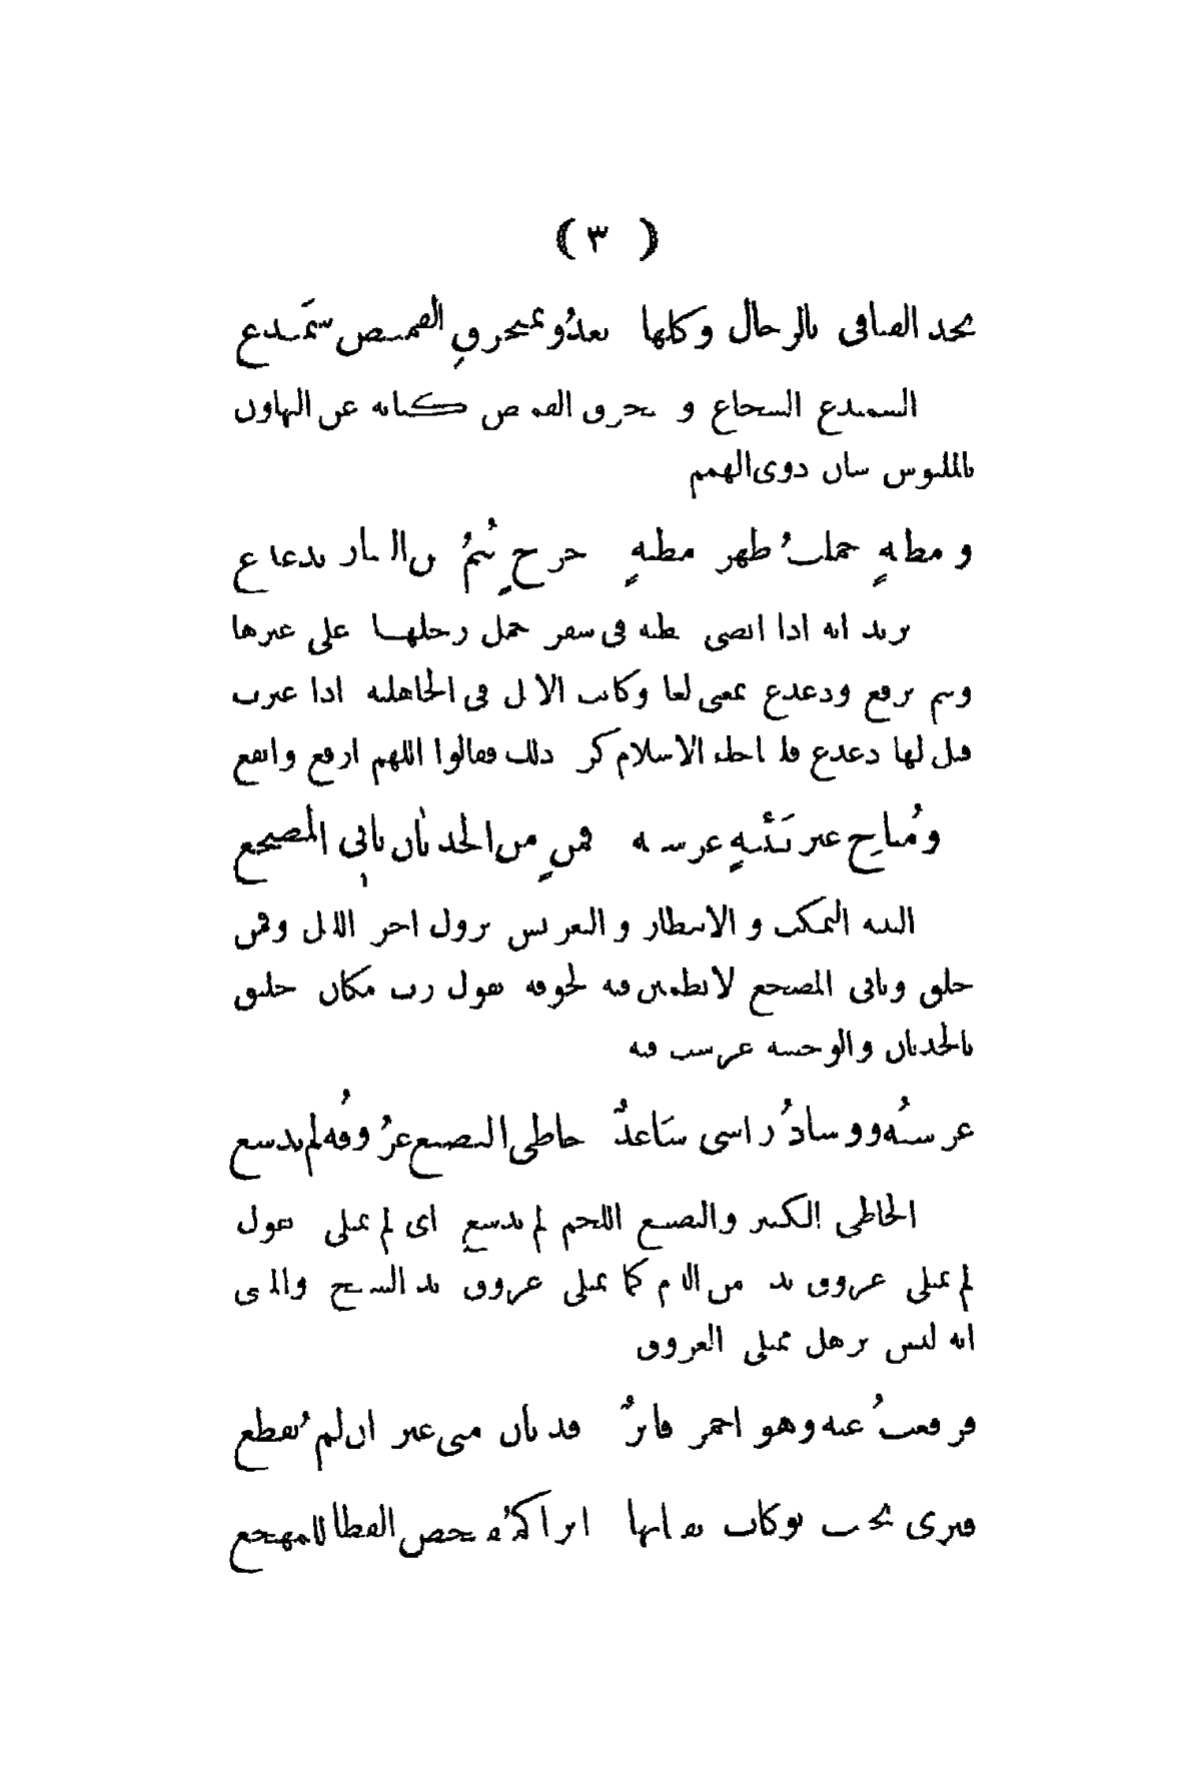 ( ٣ )
تخد الفيافى بالرحال وكلها يعدُو بمنخرقِ القميص سَمَيدع
السميدع الشجاع و منخرق القميص كناية عن التهاون
بالملبوس شان ذوى الهمم
ومطيةٍ حملتُ ظهر مطيةٍ حرجٍ تُنَمُّ من العثار بدعدع
يريد انه اذا انضى مطيه فى سفر حمل رحلها على غيرها
وتنم ترفع ودعدع بمعنى لعا وكانت الابل فى الجاهلية اذا عثرت
قيل لها دعدع فلما جاء الاسلام كره ذلك فقالوا اللهم ارفع وانفع
ومُناخِ غير تَئيةٍ عرسته قمنٍ من الحدثان نابى المضجع
التئية التمكث و الانتظار و التعريس نزول اخر الليل وقمن
خليق ونابى المضجع لا يطمئن فيه لخوفه يقول رب مكان خليق
بالحدثان والوحشه عرست فيه
عرستُه ووسادُ راسى سَاعدٌ خاظى البضيع عرُوقُه لم تدسع
الخاظى الكثير والبضيع اللحم لم تدسع اى لم تمتلى يقول
لم تمتلى عروق يده من الدم كما تمتلى عروق يد الشيخ والمعنى
انه ليس برهل ممتلى العروق
فرفعتُ عنه وهو احمر فاترٌ قد بان منى غير ان لم يُقطع
فترى بحيث توكات ثفناتها اثرا كمُفتحص القطا للمهجع